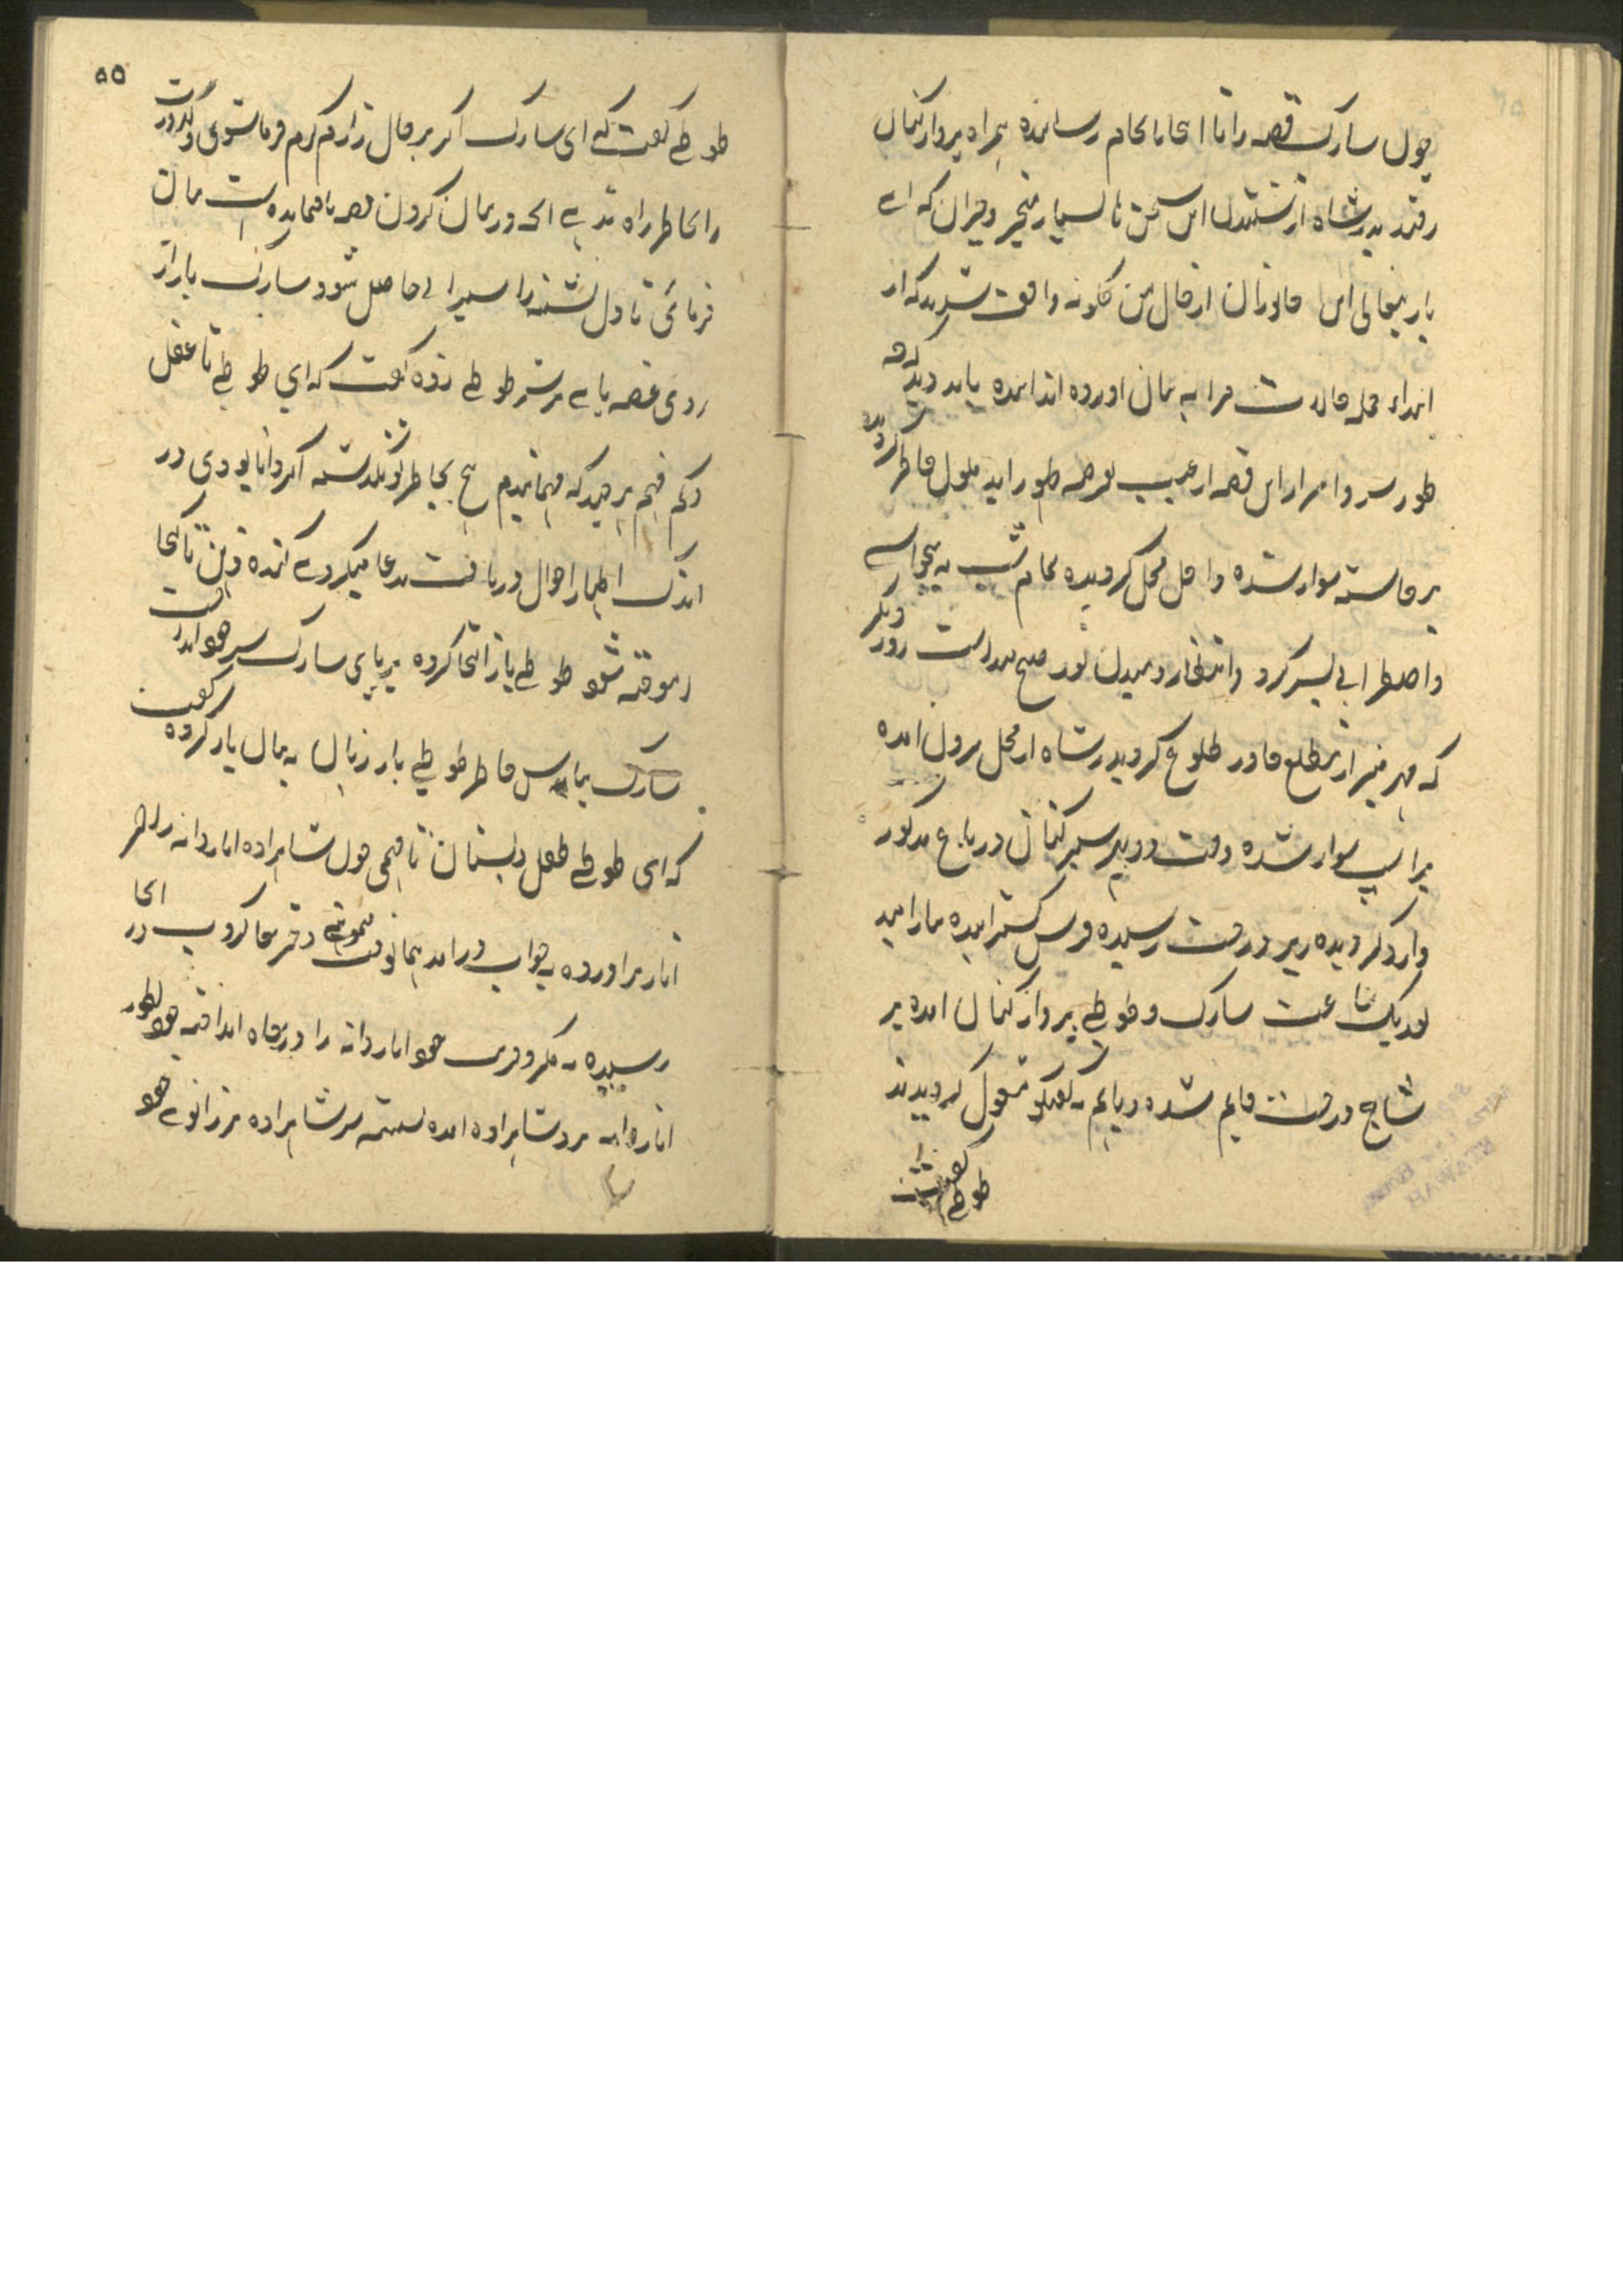 چون سارک قصه را تا انجا بانجام رسانیده همراه پرواز کنان
رفتند بدرشاه از شنیدن این سخن ها بسیار متحیر و حیران که اے
یار بنجانی این جانوران از حال من چگونه واقف شدند که از
ابتداء جمله حالات مرا به بیان اورده اند اینده باید دید که چه
طور سر و اسرار این قصه از غیب بعرصه ظهور اید ملول خاطر
برخاسته سوار شده داخل محل گردیده تمام شب به بیخوابے
و اضطرابی بسر کرد و انتظار دمیدن نور صبح میداشت روز دیگر
که مهر منیر از مطلع خاور طلوع گردید بدرشاه از محل برون امده
بر اسپ سوار شده وقت دوپهر سیر کنان در باغ مذکور
وارد گردیده زیر درخت رسیده فرش گسترانیده بارامید
بعد یک ساعت سارک و طوطے پرواز کنان امده بر
شاخ درخت قایم شده و باهم به گفتگو مشغول گردیدند
طوطے گفت
۵۵
طوطے گفت که ای سارک اگر بر حال زارم کرم فرما شوی و کدورت
را بخاطر راه ندهے انچه در بیان کردن قصه باقیمانده است بیان
فرمائی تا دل تشنه را سیرابی حاصل شود سارک باز از
روی غصه پاے بر سر طوطے زده گفت که ای طوطے نا عقل
و کم فهم هر چند که فهمانیدم هیچ بخاطر تو نگذشته اگر دانا بودی در
اندک اظهار احوال دریافت مدعا میکردے کنده ذهن تا کجا
اموخته شود طوطے باز التجا کرده بر پای سارک سر خود انداخت
سارک بپاس خاطر طوطے باز زبان به بیان باز کرده گفت
که ای طوطے طفل دبستان نا فهمی چون شاهزاده اناردانه را از
انار براورده بخواب درامد همانوقت دختر خاکروب در انجا
رسیده به مکر و فریب خود اناردانه را در چاه انداخته خود بطور
اناردانه نزد شاهزاده امده نشسته سر شاهزاده بر زانوے خود